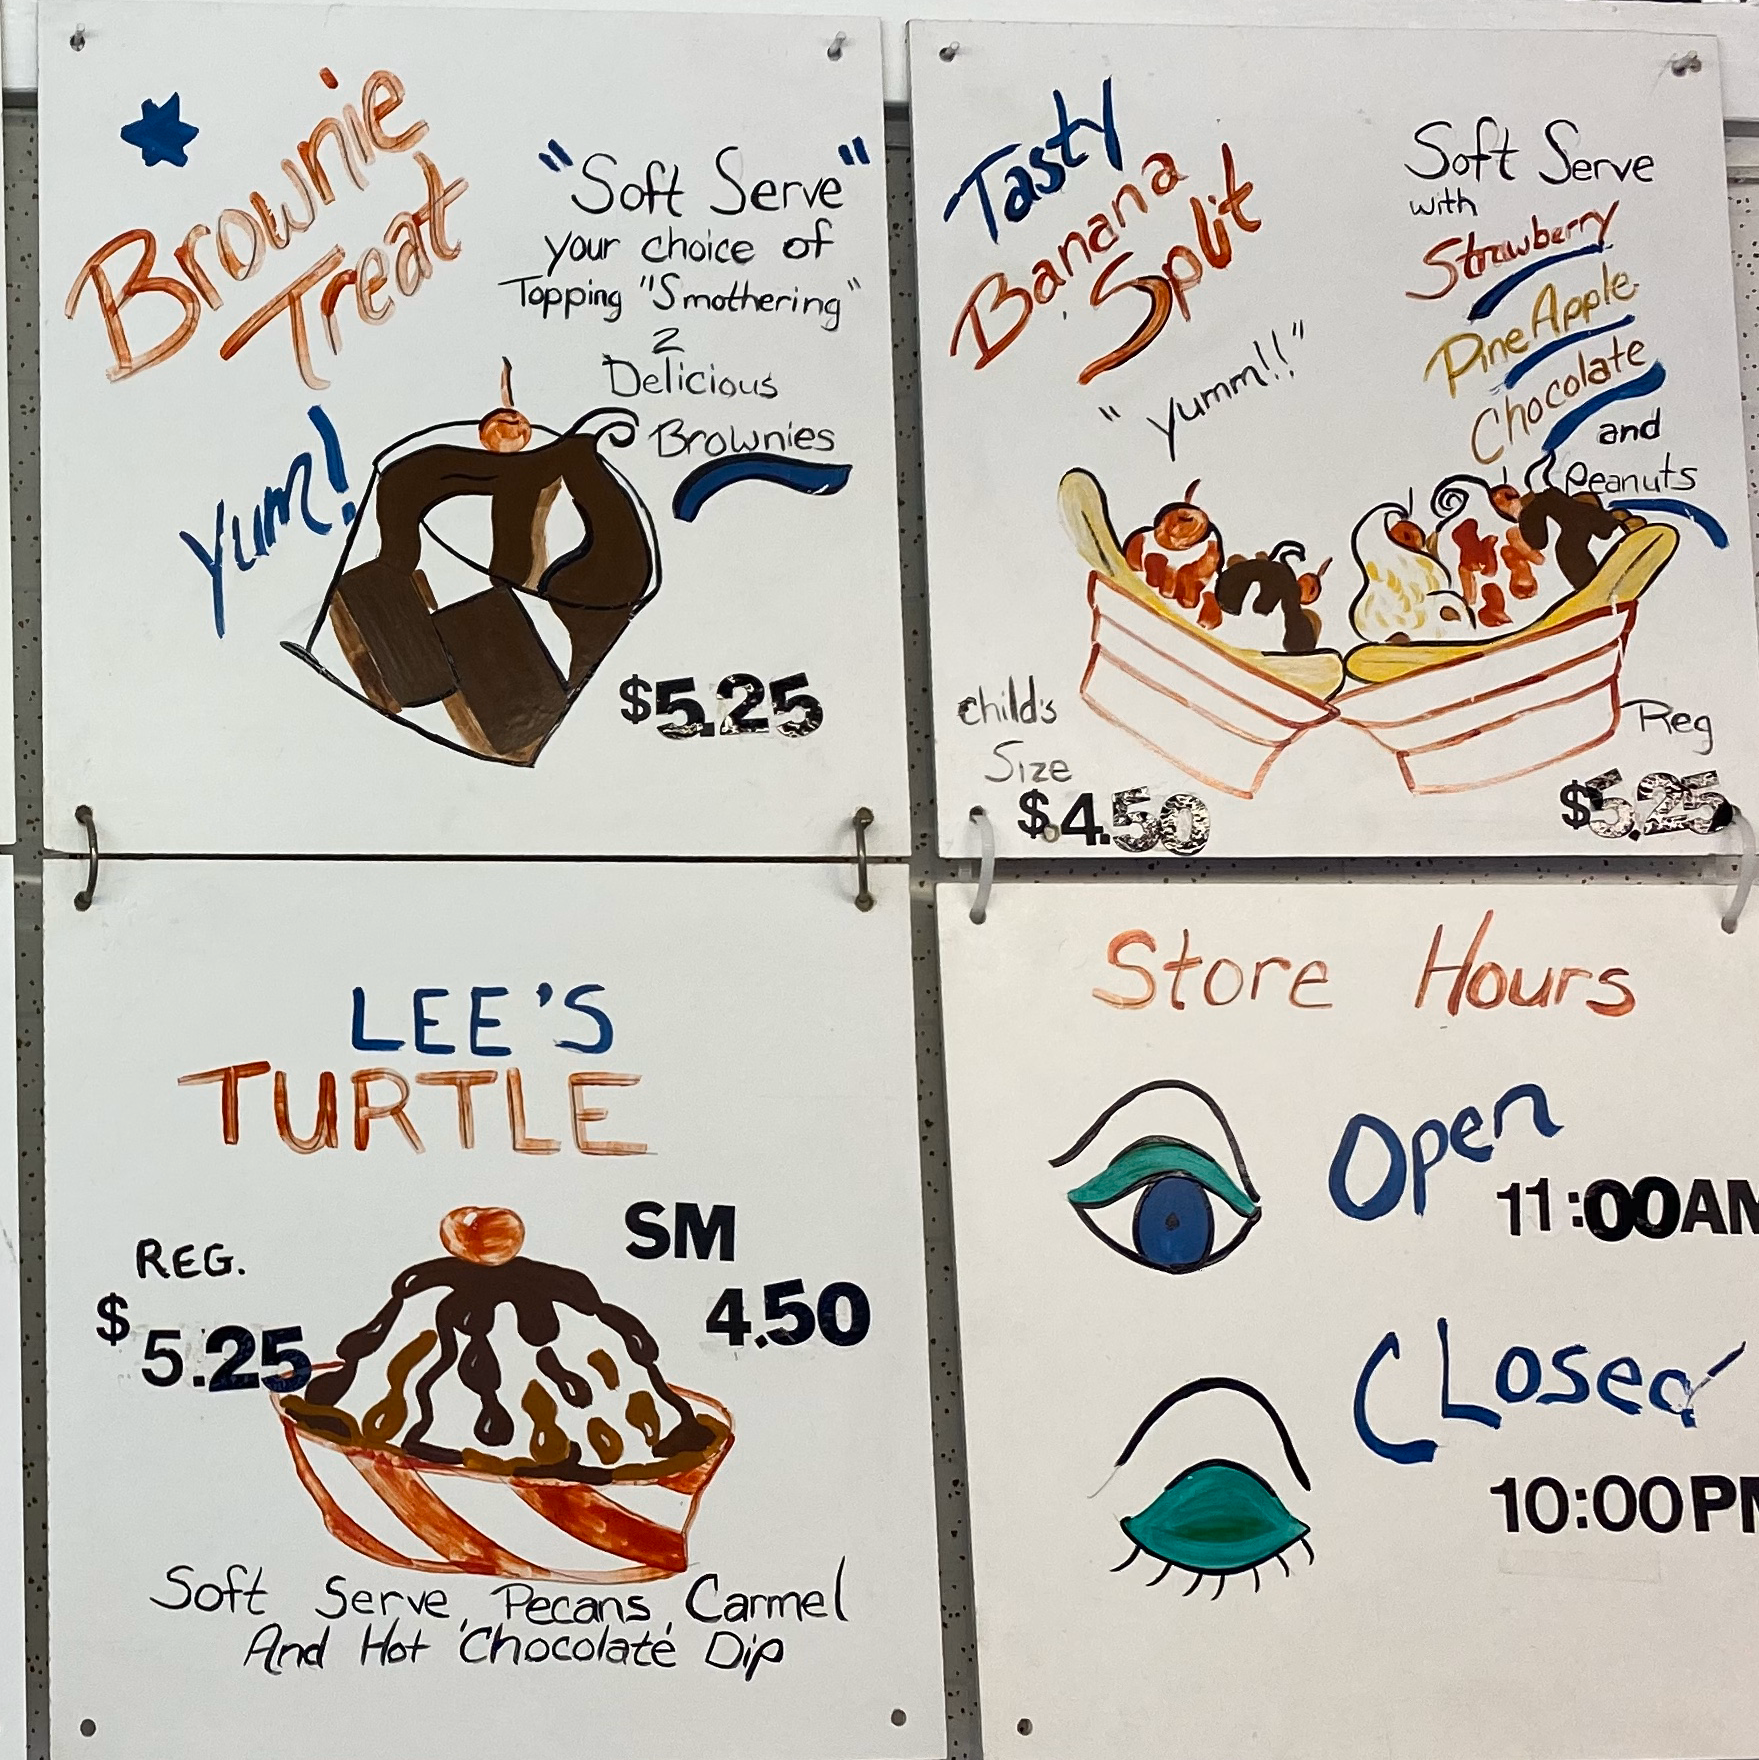 Brownie
Treat
"Soft Serve"
your choice of
Topping "Smothering"
2
Delicious
Brownies
Yum!
$5.25
Tasty
Banana
Split
"Yumm!!"
Soft Serve
with
Strawberry
PineApple
Chocolate
and
Peanuts
Child's
Size
$4.50
Reg
$5.25
LEE'S
TURTLE
REG.
$5.25
SM
4.50
Soft Serve, Pecans, Carmel
And Hot 'Chocolate' Dip
Store Hours
Open
11:00AM
CLosed
10:00PM